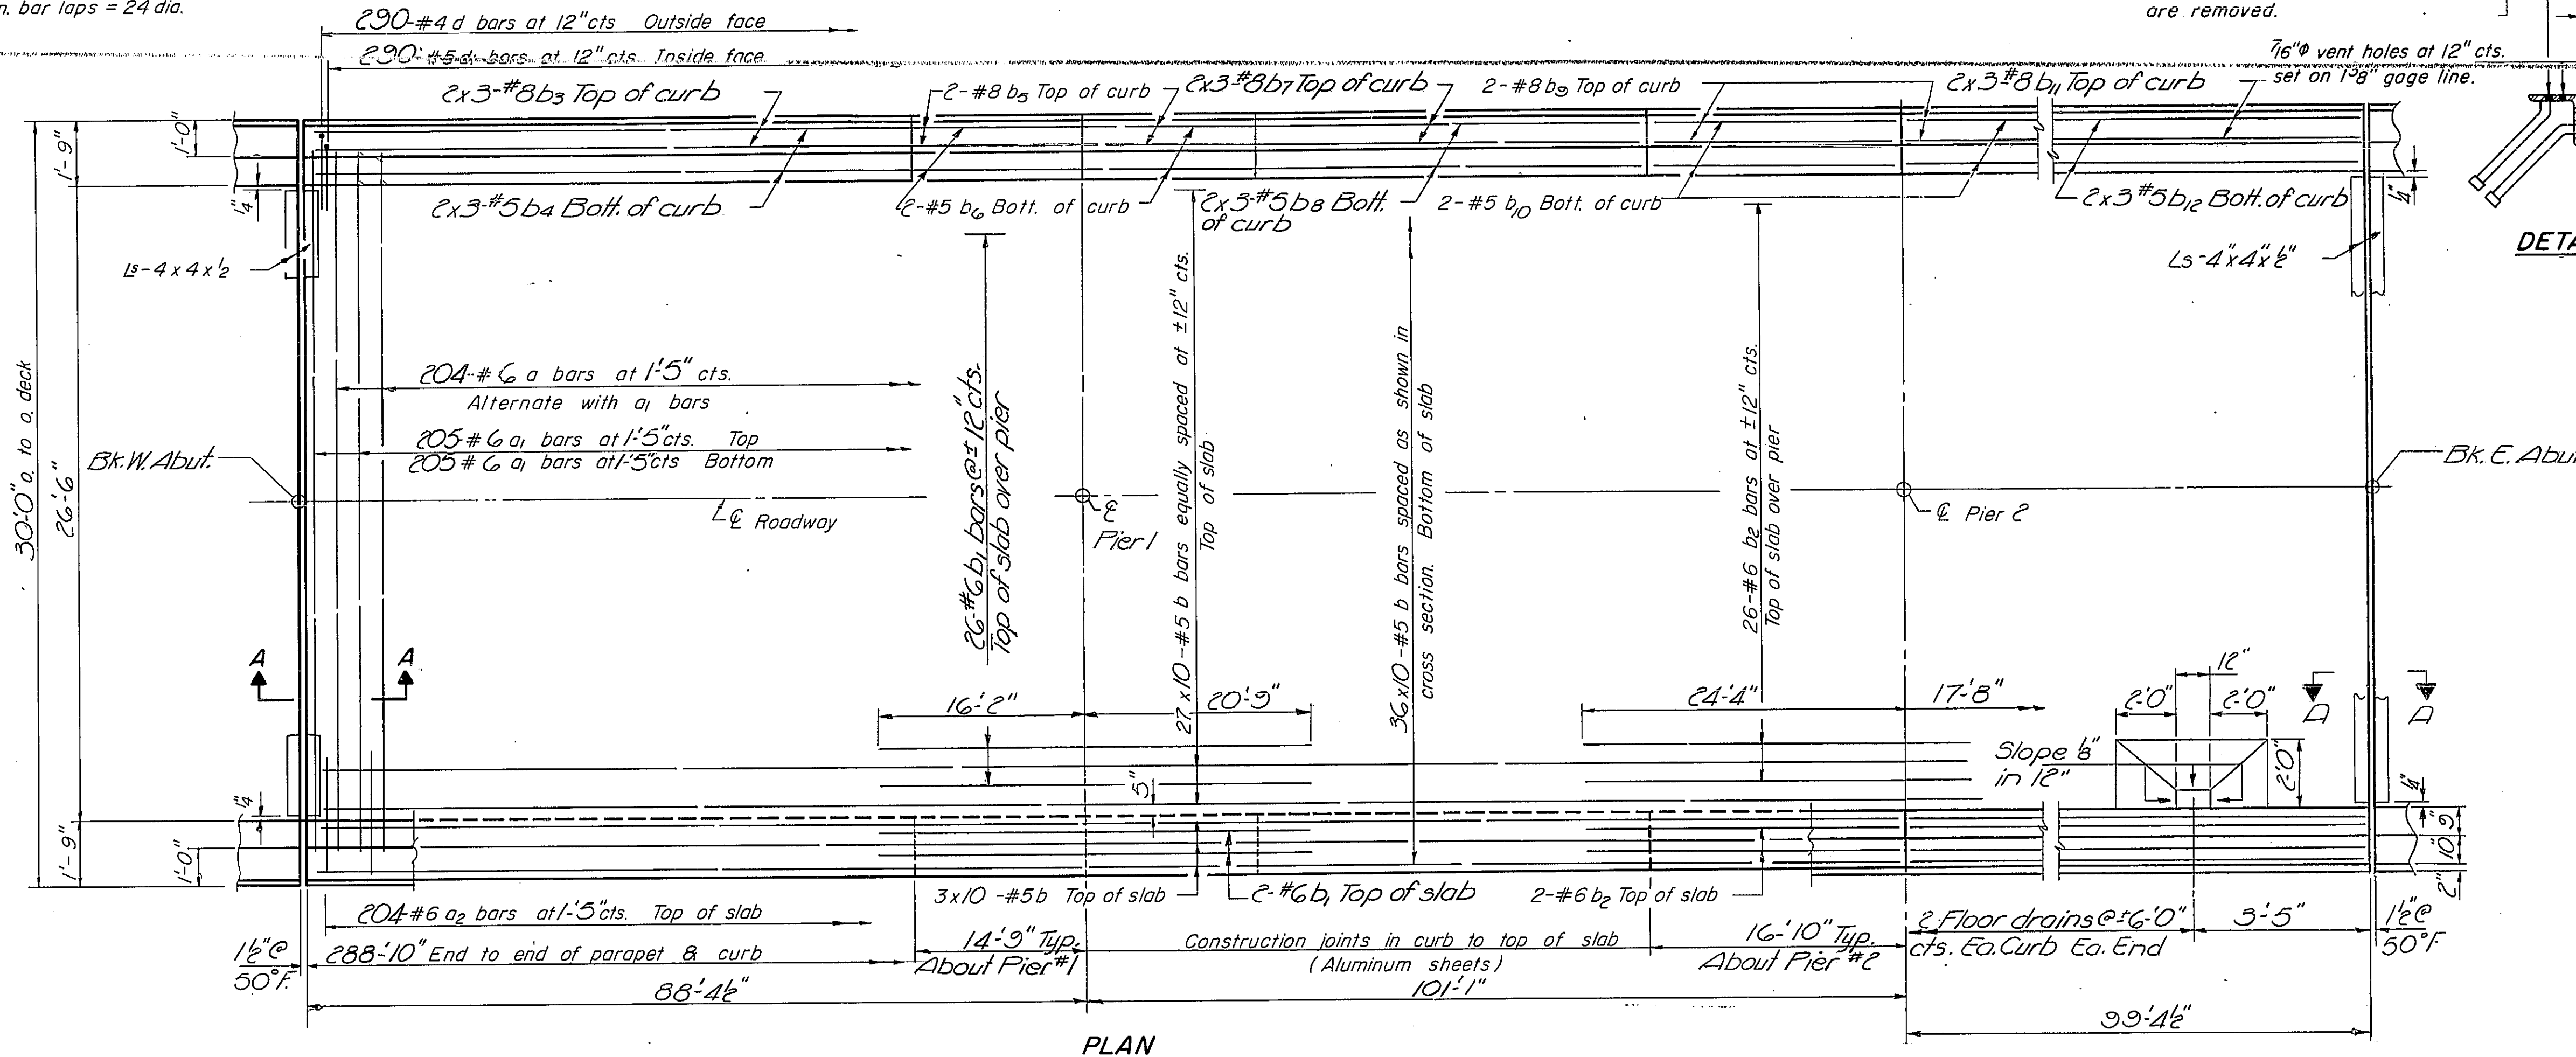 n. bar laps = 24 dia.
290-#4 d bars at 12" cts Outside face
290-#5 d₁ bars at 12" cts. Inside face
are removed.
7/16"φ vent holes at 12" cts.
set on 1 3/8" gage line.
2x3-#8b₃ Top of curb
2-#8 b₅ Top of curb
2x3-#8b₇ Top of curb
2-#8 b₉ Top of curb
2x3-#8b₁₁ Top of curb
1'-9"
1'-0"
1/4"
2x3-#5b₄ Bott. of curb
2-#5 b₆ Bott. of curb
2x3-#5b₈ Bott.
of curb
2-#5 b₁₀ Bott. of curb
2x3 #5b₁₂ Bott. of curb
1/4"
Ls-4x4x1/2
Ls-4"x4"x1/2"
DETA
30'-0" o. to o. deck
26'-6"
204-#6 a bars at 1'-5" cts.
Alternate with a₁ bars
205-#6 a₁ bars at 1'-5" cts. Top
205 #6 a₁ bars at 1'-5" cts Bottom
26-#6b₁ bars@±12"cts.
Top of slab over pier
27x10-#5 b bars equally spaced at ±12" cts.
Top of slab
36x10-#5 b bars spaced as shown in
cross section. Bottom of slab
26-#6 b₂ bars at ±12" cts.
Top of slab over pier
Bk. W. Abut.
℄ Roadway
℄
Pier 1
℄ Pier 2
Bk. E. Abu
A
A
16'-2"
20'-9"
24'-4"
17'-8"
12"
2'-0"
2'-0"
A
A
Slope 1/8"
in 12"
2'-0"
5"
1/4"
1/4"
1'-9"
1'-0"
9"
10"
2"
3x10-#5b Top of slab
2-#6b₁ Top of slab
2-#6 b₂ Top of slab
204-#6 a₂ bars at 1'-5"cts. Top of slab
1 1/2"@
50°F.
288'-10" End to end of parapet & curb
14'-9" Typ.
About Pier #1
Construction joints in curb to top of slab
(Aluminum sheets)
16'-10" Typ.
About Pier #2
2-Floor drains@±6'-0"
cts. Ea. Curb Ea. End
3'-5"
1 1/2"@
50°F
88'-4 1/2"
101'-1"
99'-4 1/2"
PLAN